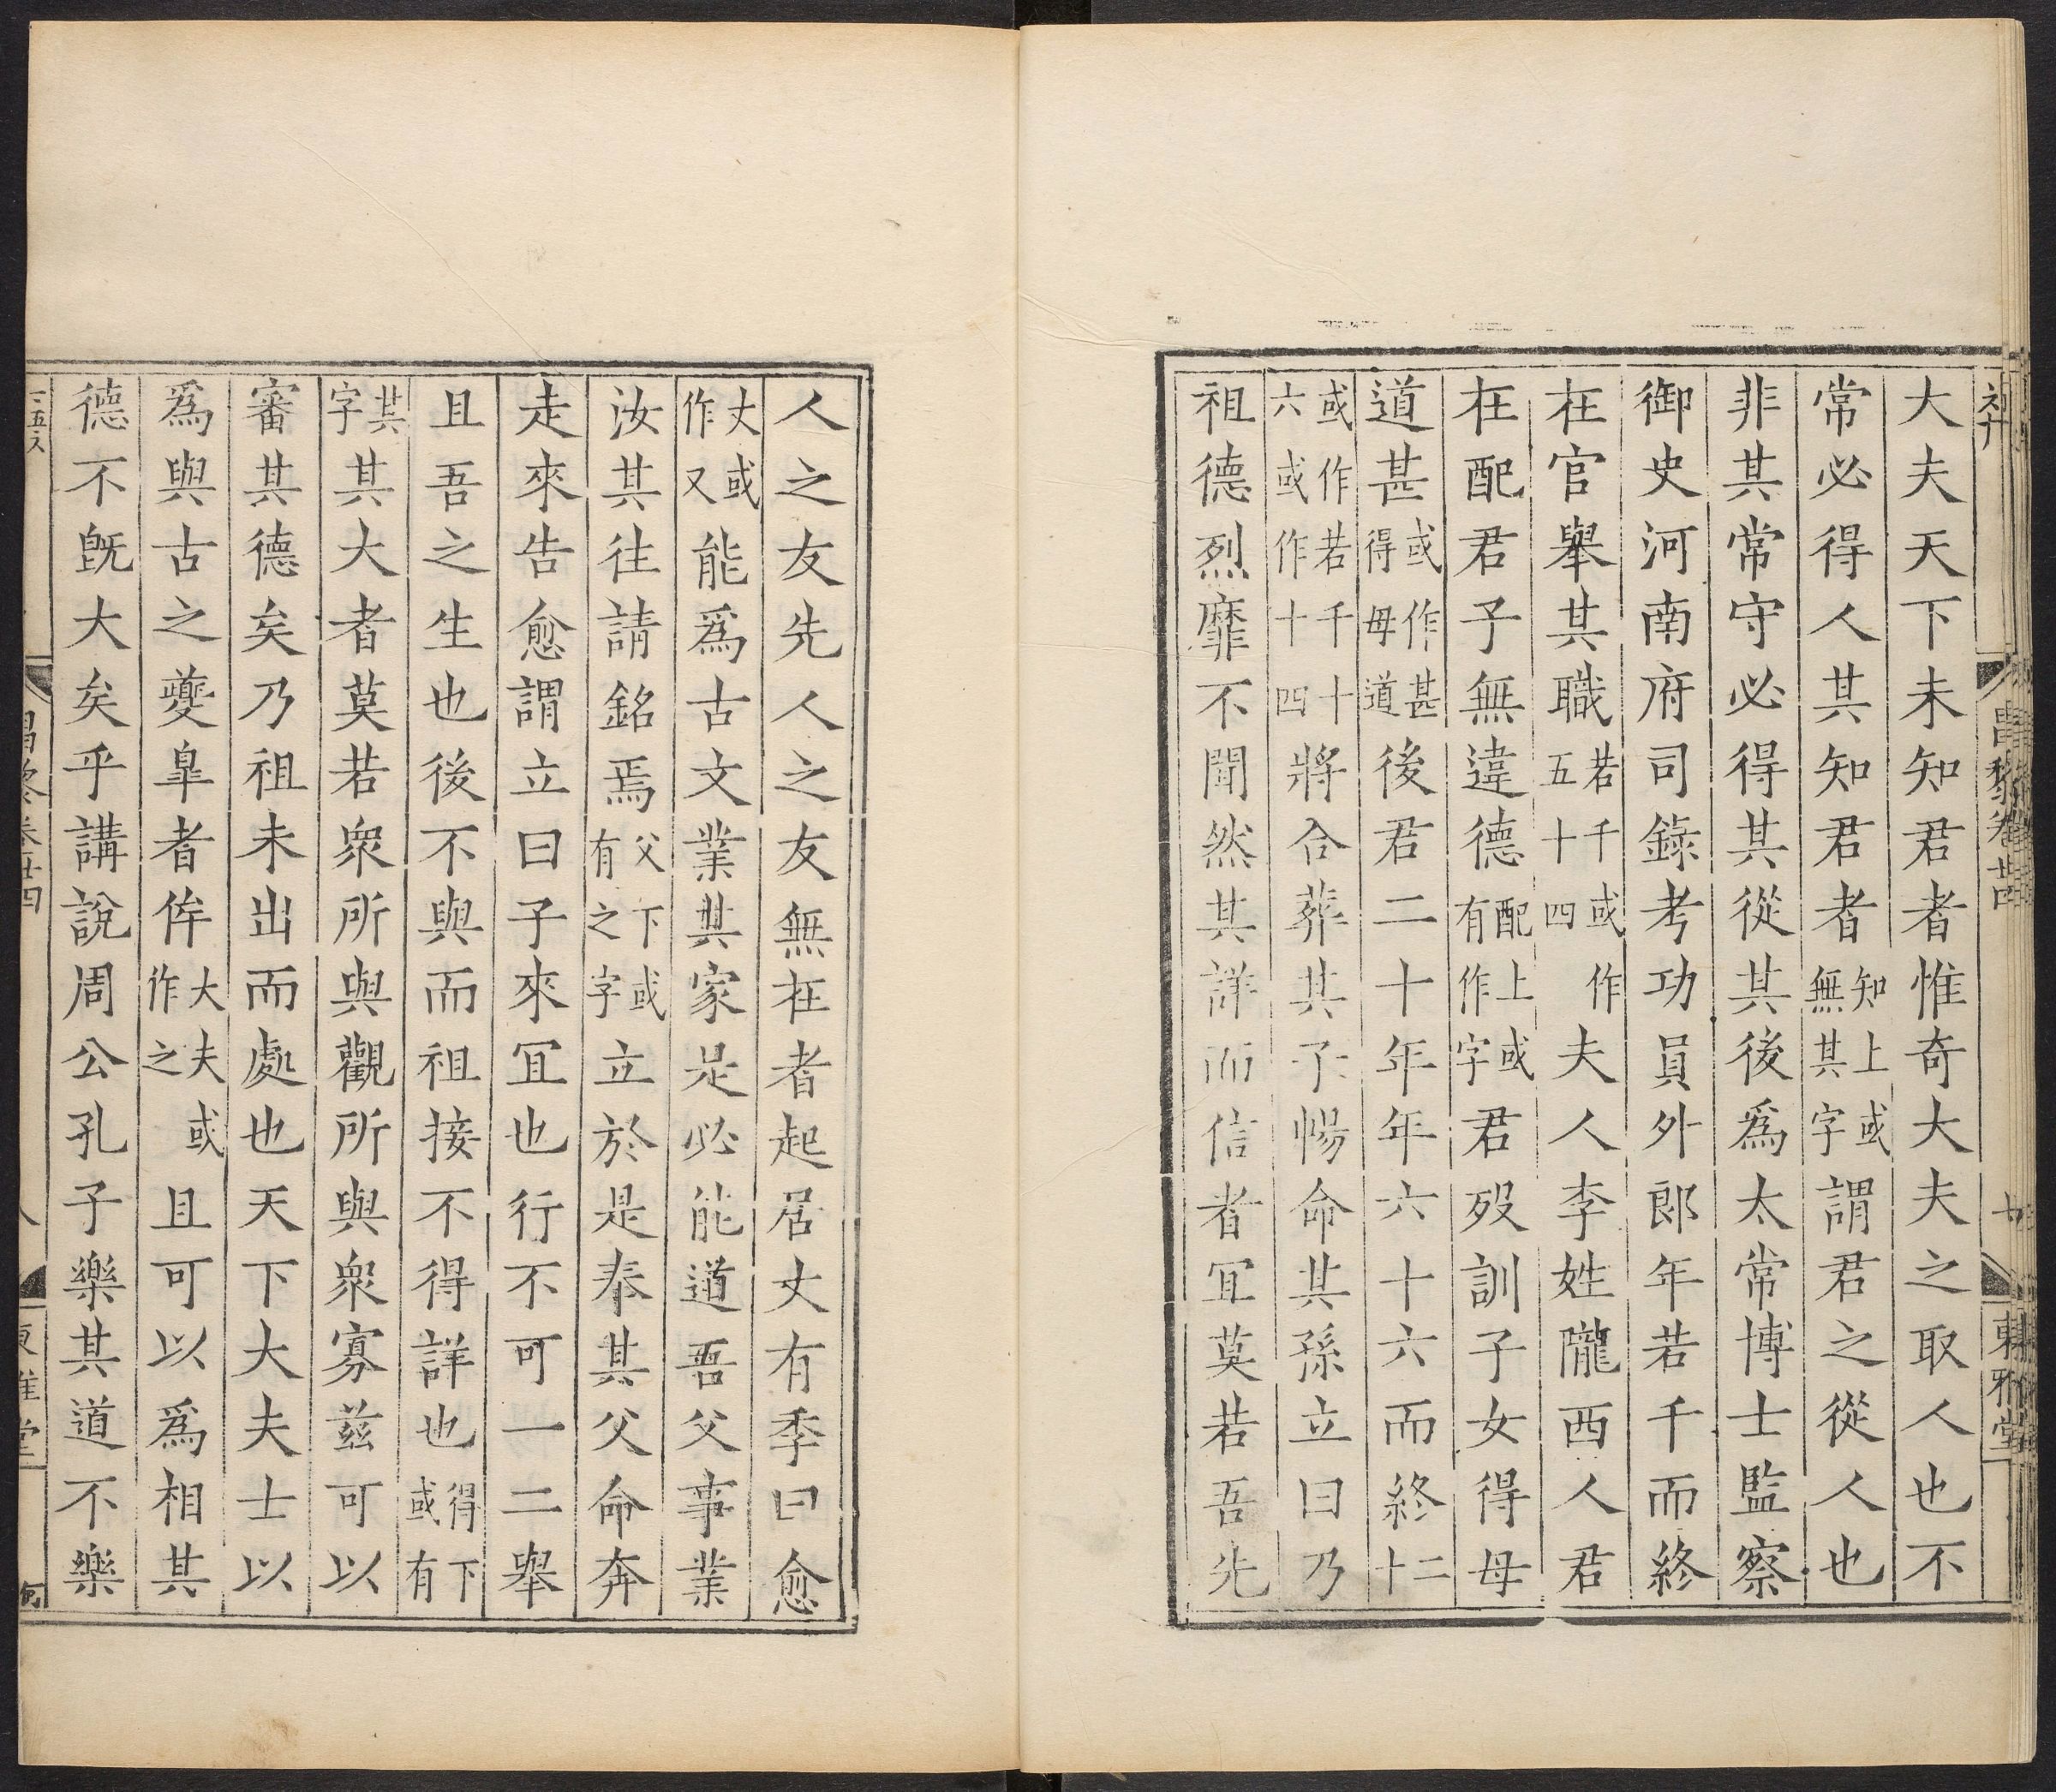 大夫天下未知君者惟奇大夫之取人也不
常必得人其知君者知上或無其字謂君之從人也
非其常守必得其從其後爲太常博士監察
御史河南府司錄考功員外郎年若千而終
在官舉其職若千或作五十四夫人李姓隴西人君
在配君子無違德配上或有作字君歿訓子女得母
道甚或作甚得母道後君二十年年六十六而終十二
或作若千十六或作十四將合葬其子惕命其孫立曰乃
祖德烈靡不聞然其詳而信者宜莫若吾先
人之友先人之友無在者起居丈有季曰愈
丈或作又能爲古文業其家是必能道吾父事業
汝其往請銘焉父下或有之字立於是奉其父命奔
走來告愈謂立曰子來宜也行不可一二舉
且吾之生也後不與而祖接不得詳也得下或有
其字其大者莫若衆所與觀所與衆寡茲可以
審其德矣乃祖未出而處也天下大夫士以
爲與古之夔皐者侔大夫或作之且可以爲相其
德不旣大矣乎講說周公孔子樂其道不樂
昌黎卷廿四
東雅堂